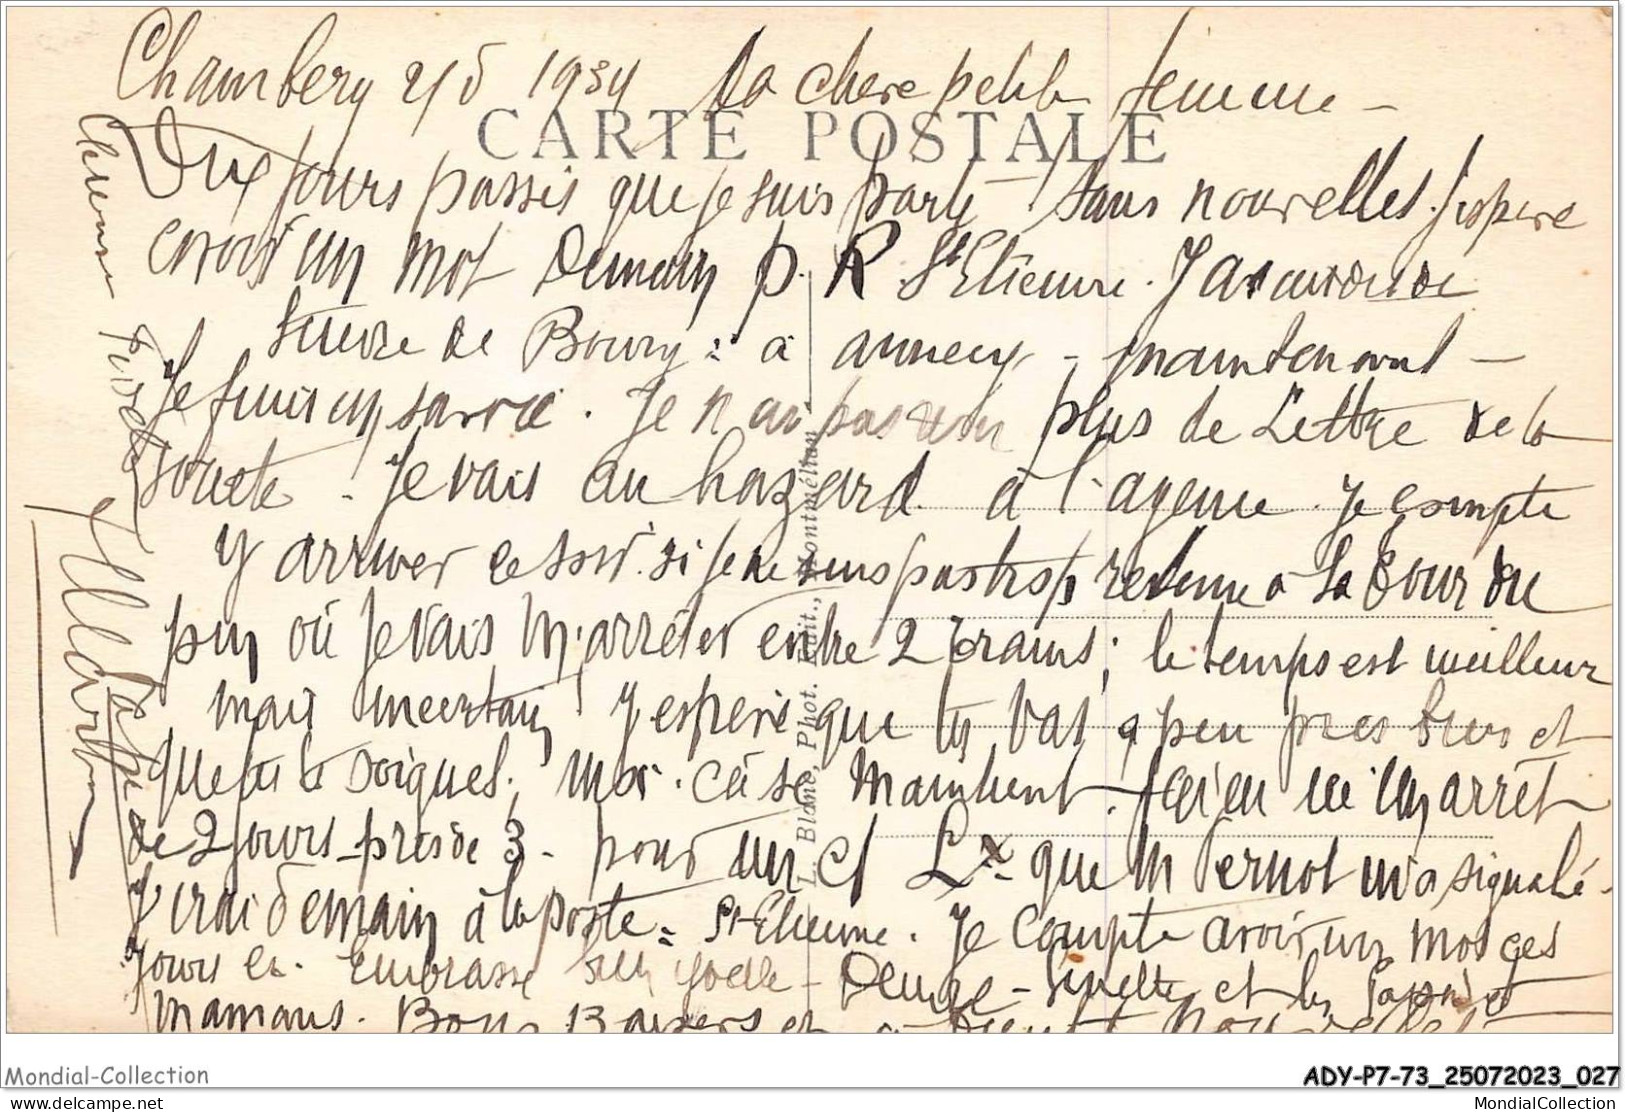 Chambery 2/5 1934 Ma chere petite femme -
CARTE POSTALE
Dix jours passés que je suis parti sans nouvelles. J'espere
avoir un mot Demain p. R. St Etienne. J
de Bourg = à annecy - maintenant -
Je finis en savoie. Je n'ai pas plus de Lettre de la
route - Je vais au hazard à l'agence. Je compte
y arriver ce soir. si je ne suis pas trop retenu a La Tour du
pin où je vais m'arrêter entre 2 trains; le temps est meilleur
mais incertain j'espere que tu vas a peu pres bien et
que tu te soignes. Moi ca se maintient. J'ai eu un arrêt
de 2 jours près de 3 - pour un Ct Lx que M Pernot m'a signalé -
J'irai Demain à la poste = St Etienne. Je compte avoir un mot ces
jours ci. Embrasse Denyse - Ginette et les Papas et
Mamans. Bons Baisers et a bientot
L. Blanc, Phot. Edit., Montmélian
Mondial-Collection
ADY-P7-73_25072023_027
delcampe.net
MondialCollection